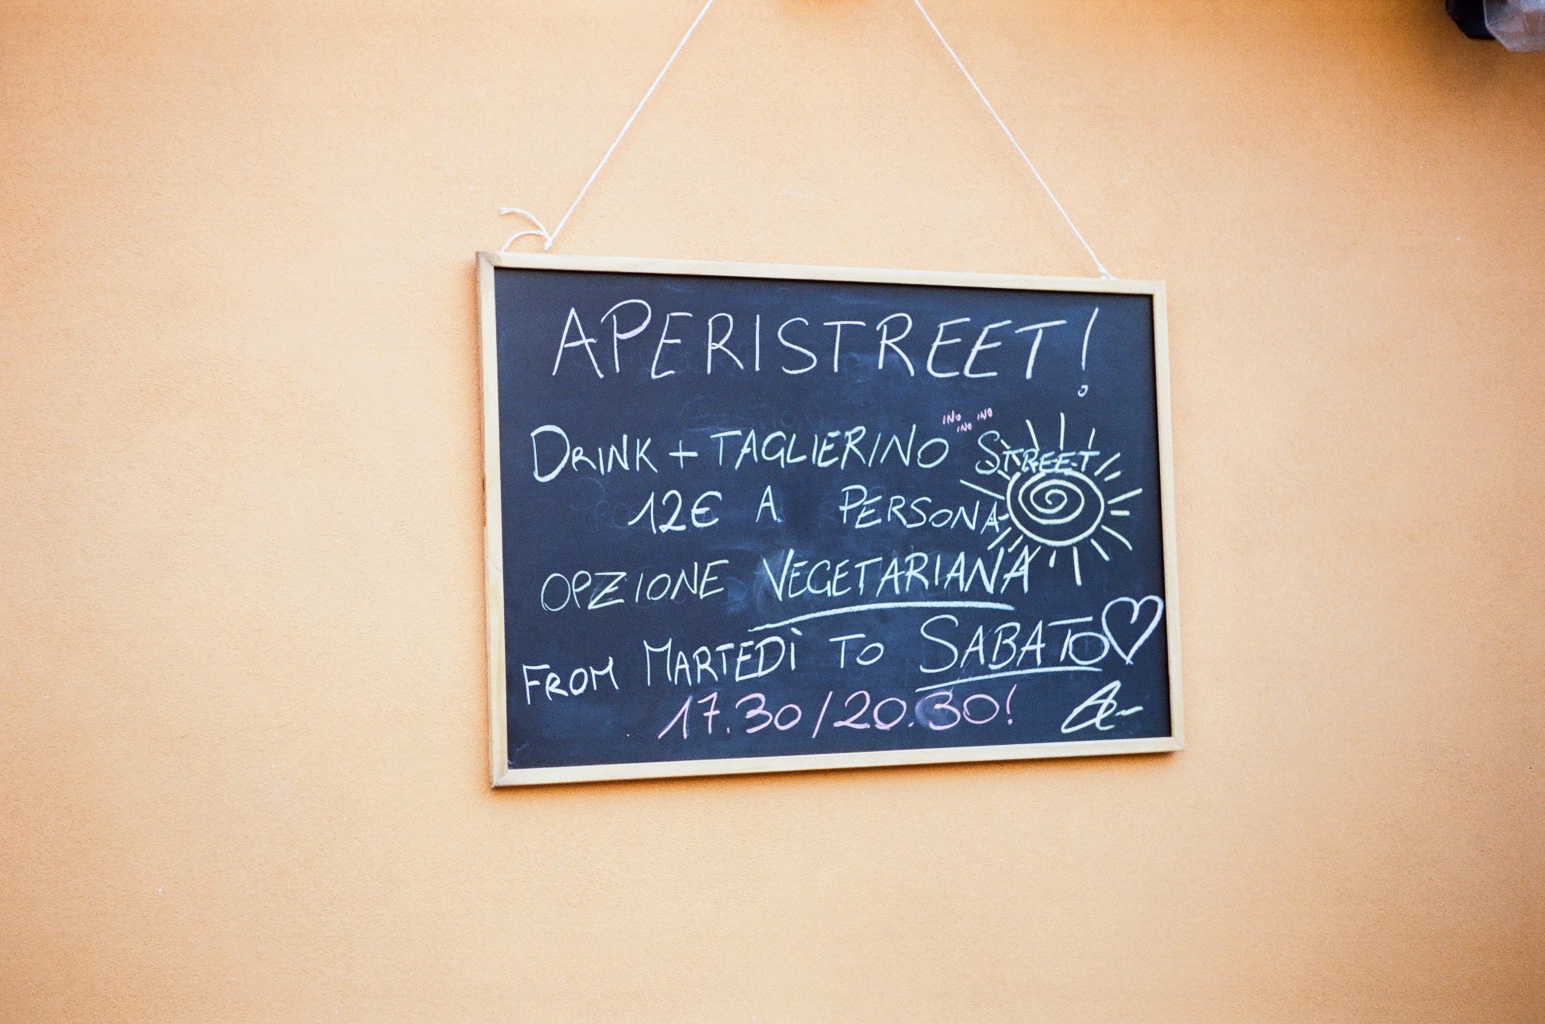 APERISTREET!
INO INO INO
DRINK + TAGLIERINO STREET
12€ A PERSONA
OPZIONE VEGETARIANA
FROM MARTEDÌ TO SABATO
17.30/20.30!